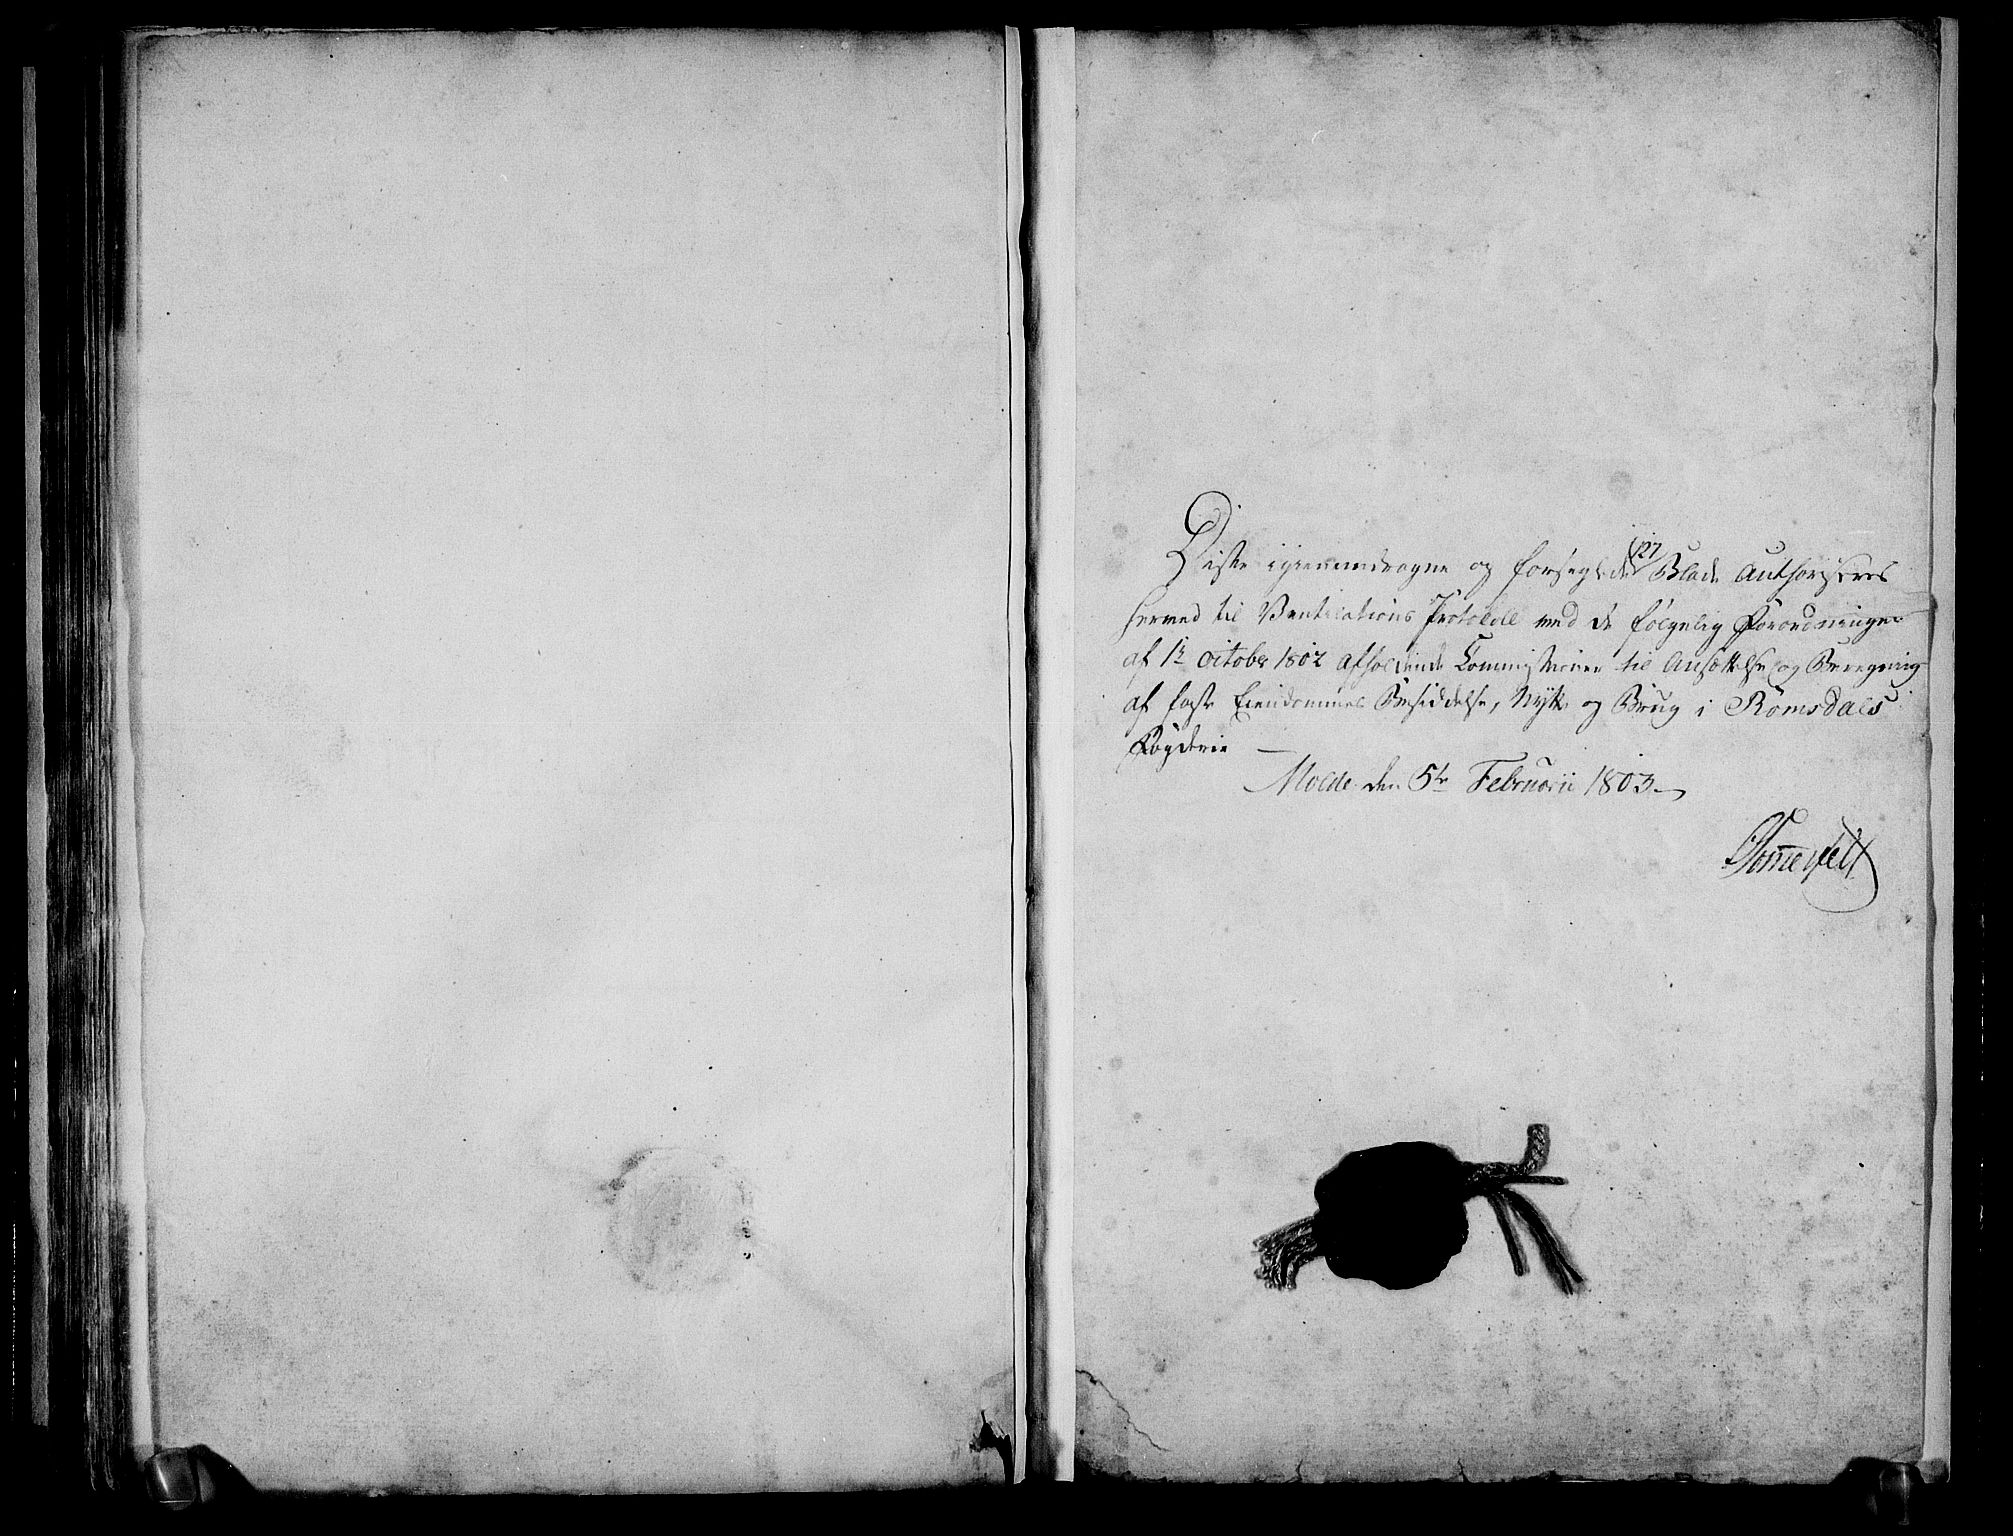 Diste igiennemdragne og forseglede 127 Blade Authoriseres
herved til Ventilations Protocoll ved de følgelig Forordningen
af 1te October 1802 afholdende Commissioner til Ansættelse og Beregning
af faste Eiendommes Besiddelse, Nytte og Brug i Romsdals
Fogderie —
Molde den 5te Februarii 1803 —
Sommerfelt